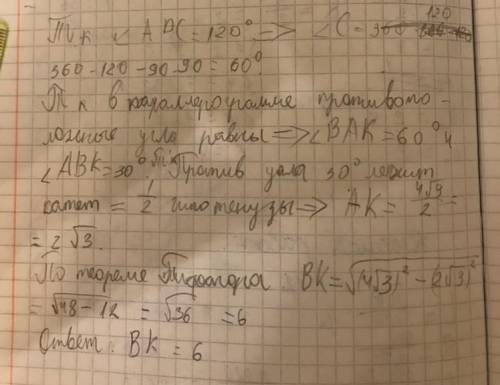 Т к ∠ ADC = 120° => ∠C =
360 - 120 - 90 - 90 = 60°
Т к в параллерограмме противопо-
ложные углы равны => ∠ BAK = 60° и
∠ABK = 30°. Против угла 30° лежит
катет = 1/2 гипотенузы => AK = 4√3/2 =
= 2√3.
По теореме Пифагора BK = √(4√3)² - (2√3)²
= √48 - 12 = √36 = 6
Ответ: BK = 6